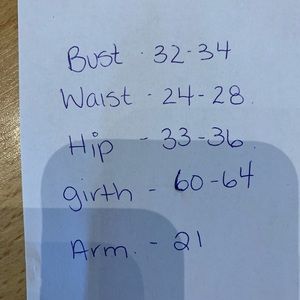 Bust - 32-34
Waist - 24-28.
Hip - 33-36
girth - 60-64
Arm. - 21